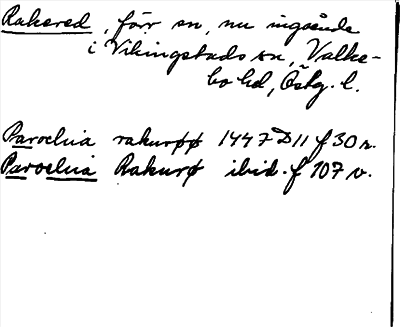 Rakered, förr sn, nu ingående
i Vikingstads sn, Valke-
bo hd, Östg. l.
Parochia rakurøø 1447 D 11 f 30 r.
Parochia Rakurø ibid. f 107 v.